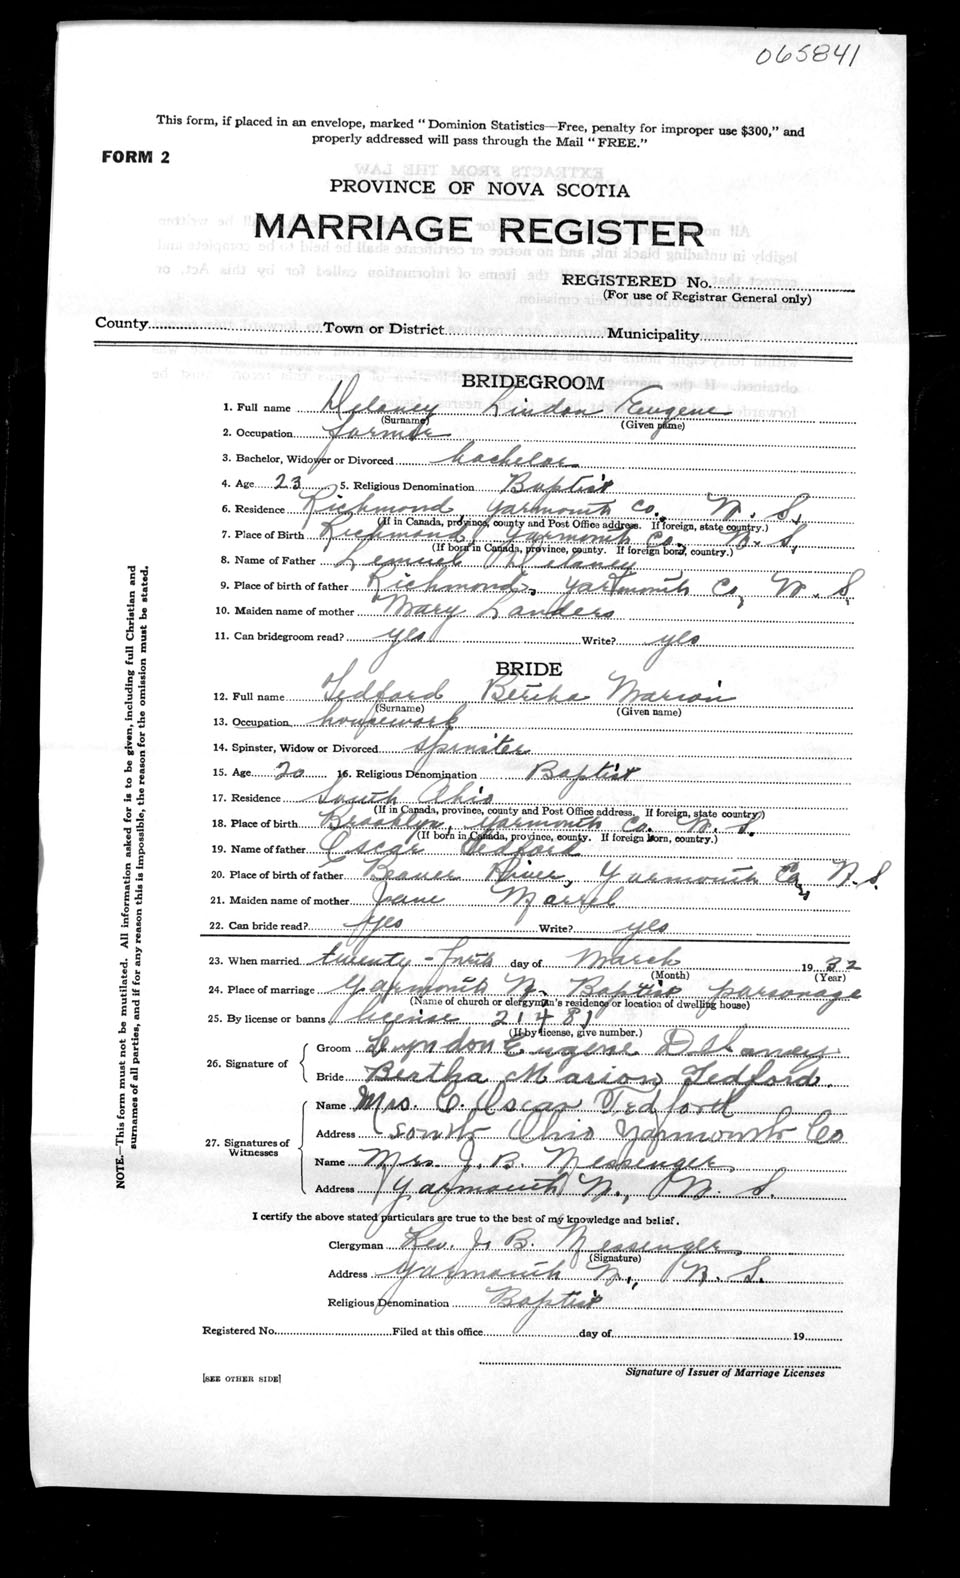 065841
This form, if placed in an envelope, marked "Dominion Statistics—Free, penalty for improper use $300," and
properly addressed will pass through the Mail "FREE."
FORM 2
PROVINCE OF NOVA SCOTIA
MARRIAGE REGISTER
REGISTERED No.
(For use of Registrar General only)
County Town or District Municipality
BRIDEGROOM
1. Full name Delaney Lindon Eugene
(Surname) (Given name)
2. Occupation farmer
3. Bachelor, Widower or Divorced bachelor
4. Age 23 5. Religious Denomination Baptist
6. Residence Richmond Yarmouth Co. N. S.
(If in Canada, province, county and Post Office address. If foreign, state country.)
7. Place of Birth Richmond, Yarmouth Co., N. S.
(If born in Canada, province, county. If foreign born, country.)
8. Name of Father Lemuel Delaney
9. Place of birth of father Richmond, Yarmouth Co, N. S.
10. Maiden name of mother Mary Landers
11. Can bridegroom read? yes Write? yes
BRIDE
12. Full name Tedford Bertha Marion
(Surname) (Given name)
13. Occupation housework
14. Spinster, Widow or Divorced spinster
15. Age 20 16. Religious Denomination Baptist
17. Residence South Ohio
(If in Canada, province, county and Post Office address. If foreign, state country.)
18. Place of birth Brooklyn, Yarmouth Co. N. S.
(If born in Canada, province, county. If foreign born, country.)
19. Name of father Oscar Tedford
20. Place of birth of father Beaver River, Yarmouth Co, N. S.
21. Maiden name of mother Jane
22. Can bride read? yes Write? yes
23. When married twenty - day of March 19 32
(Month) (Year)
24. Place of marriage Yarmouth N. Baptist parsonage
(Name of church or clergyman's residence or location of dwelling house)
25. By license or banns license 21481
(If by license, give number.)
26. Signature of
Groom Lyndon Eugene Delaney
Bride Bertha Marion Tedford.
27. Signatures of Witnesses
Name Mrs. C. Oscar Tedford
Address South Ohio Yarmouth Co
Name Mrs. J. B. Messenger
Address Yarmouth N., N. S.
I certify the above stated particulars are true to the best of my knowledge and belief.
Clergyman Rev. J. B. Messenger
(Signature)
Address Yarmouth N., N. S.
Religious Denomination Baptist
Registered No. Filed at this office day of 19
Signature of Issuer of Marriage Licenses
[SEE OTHER SIDE]
NOTE.—This form must not be mutilated. All information asked for is to be given, including full Christian and
surnames of all parties, and if for any reason this is impossible, the reason for the omission must be stated.